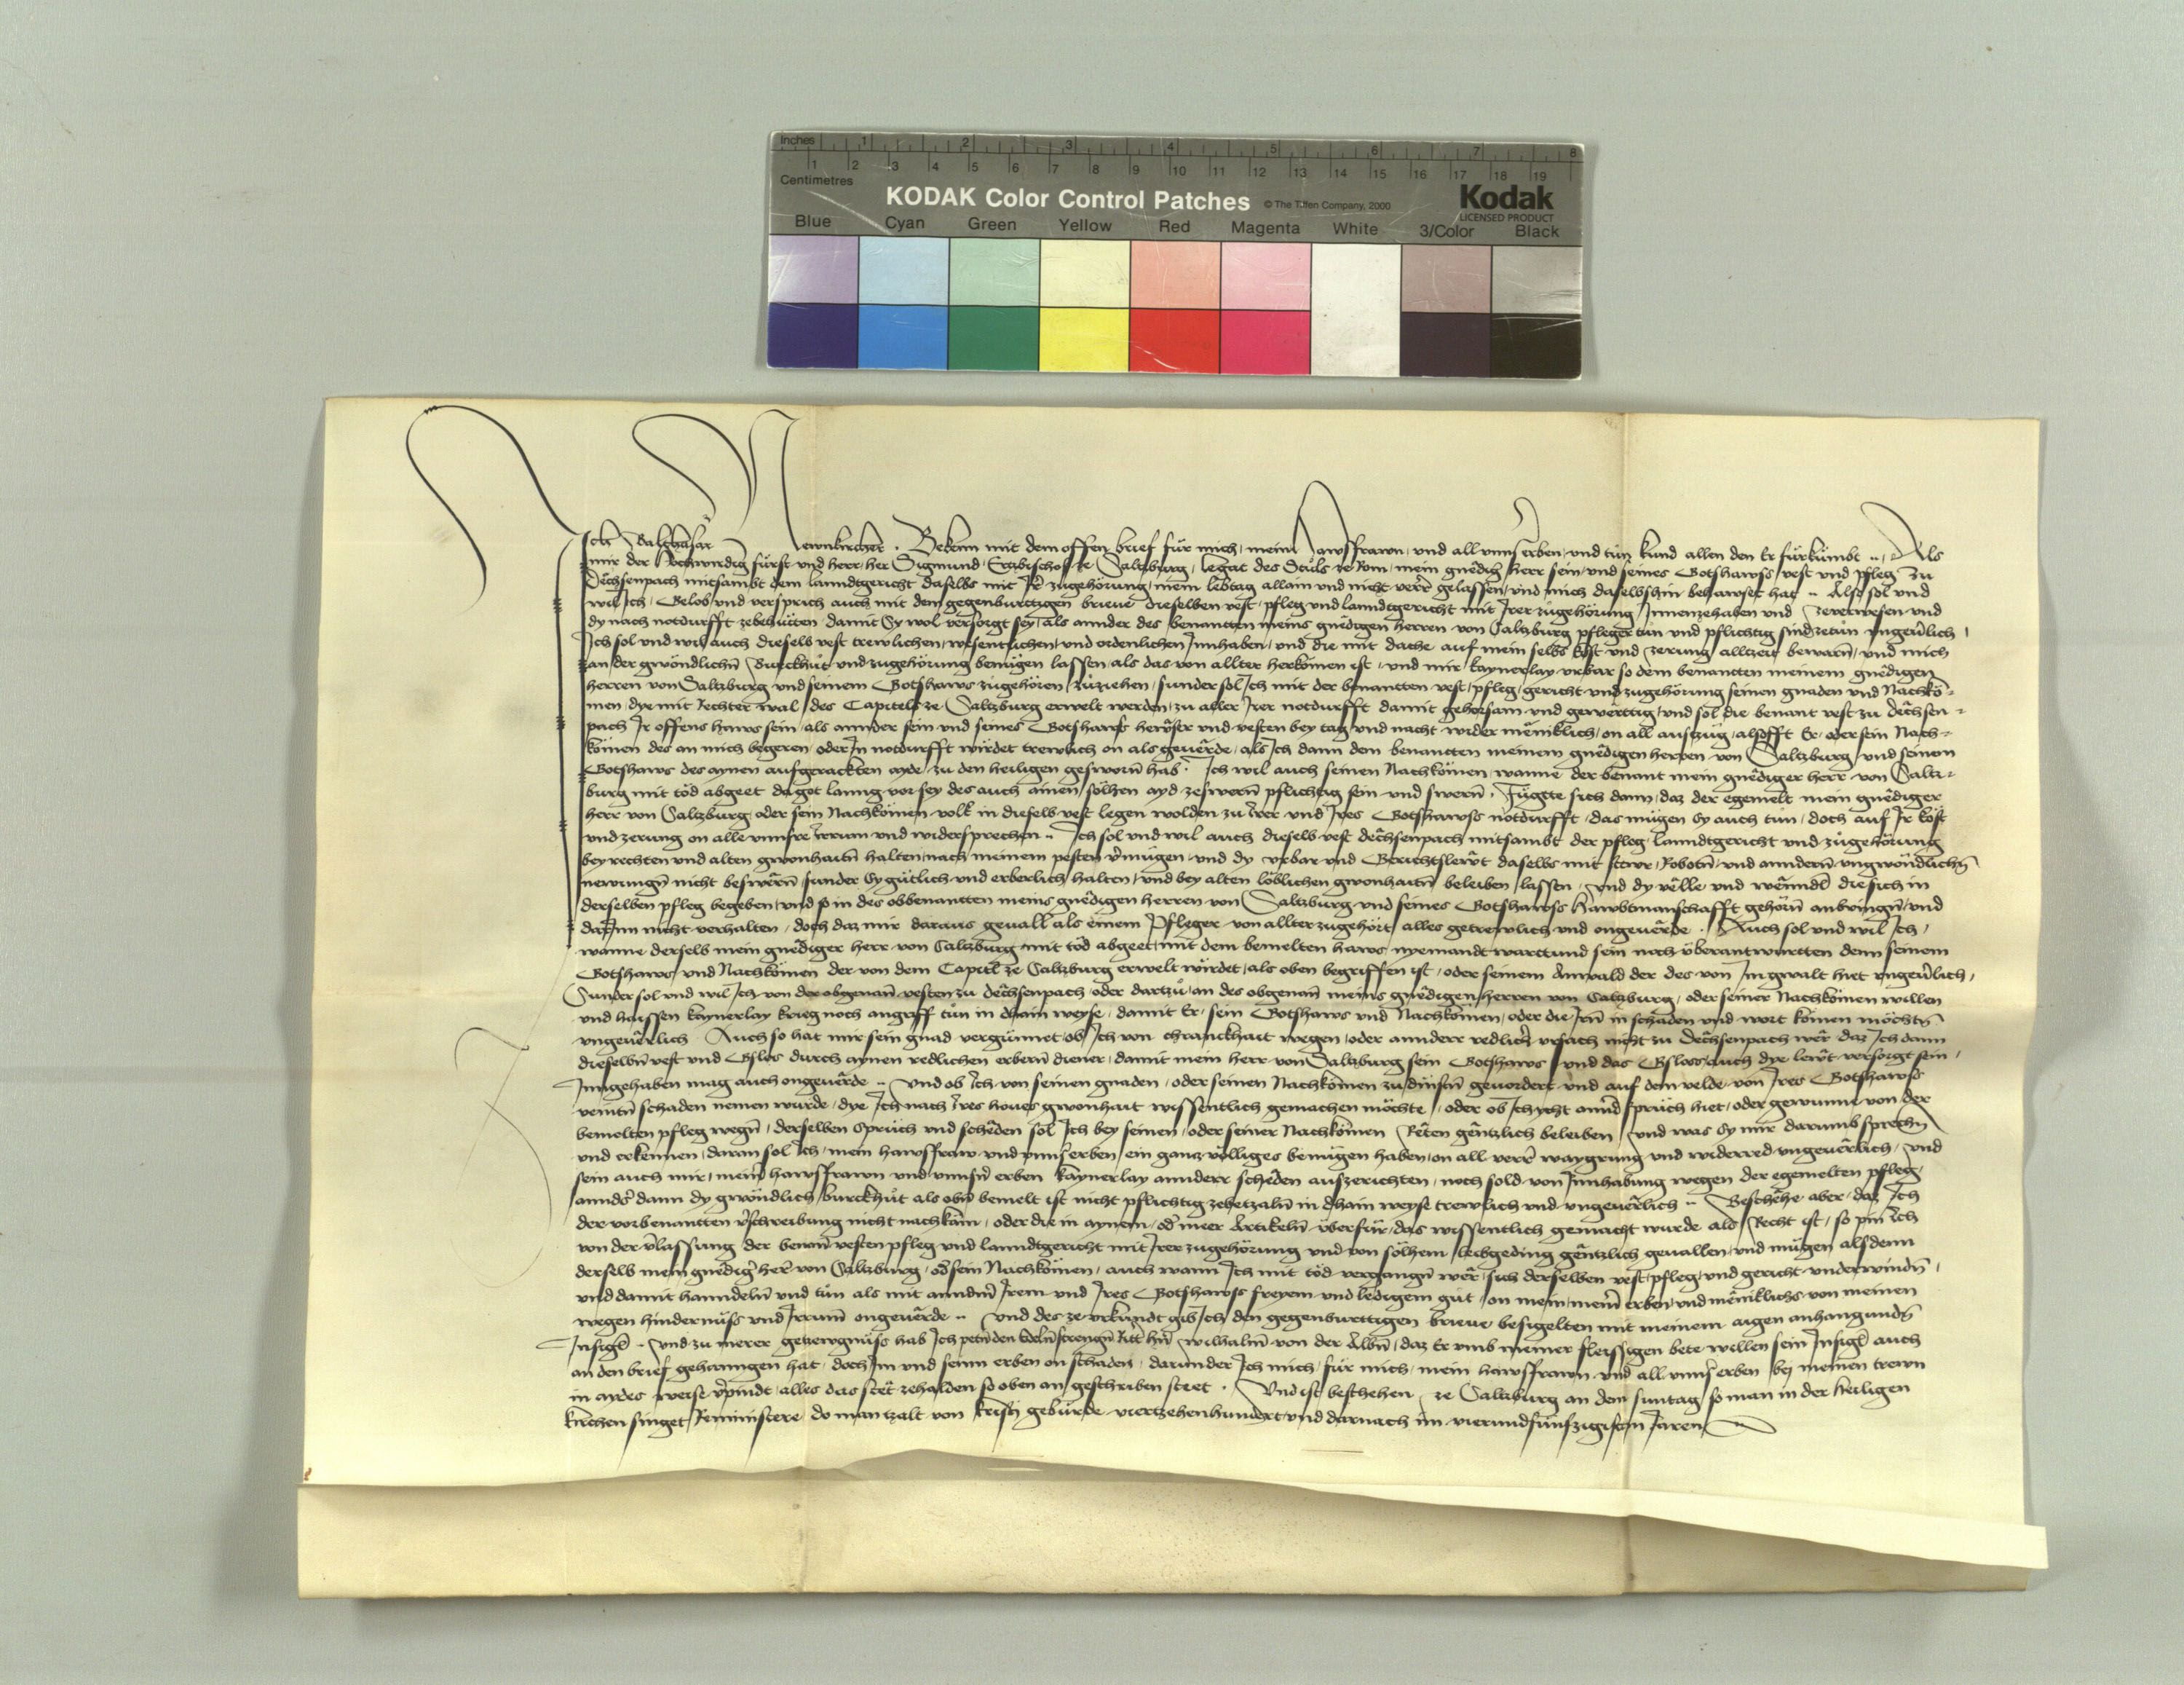 Inches 1 2 3 4 5 6 7 8
1 2 3 4 5 6 7 8 9 10 11 12 13 14 15 16 17 18 19
Centimetres
KODAK Color Control Patches © The Tiffen Company, 2000 Kodak
LICENSED PRODUCT
Blue Cyan Green Yellow Red Magenta White 3/Color Black
Ich Balthasar Newnkircher . Bekenn mit dem offen brief für mich / mein Hawsfrawn / und all unns erben / und tůn kund allen den Er fürkümbt .. Als
mir der Hochwirdig fürst und herr / her Sigmund / Ertzbischof ze Saltzburg / legat des Stůls ze Rom / mein gnêdig herr sein / und seines Gotshawss / vest und pfleg zu
Dêchsenpach mitsambt dem lanndtgericht daselbs mit zugehörung / mein lebtag allain und nicht verr gelassen / und mich daselbshin behawset hat .. Also sol und
wil Ich / Gelob und versprich auch mit dem gegenburttigen brieue dieselben vest / pfleg und lanndtgericht mit Irer zugehörung Innenzehaben und zeverwesen und
dy nach notdurfft zebehütten damit Sy wol versorgt sey / als annder des benantten meins gnêdigen herren von Saltzburg pfleger tůn und pflichtig sind zetůn ungeuêrlich /
Ich sol und wil auch dieselb vest trewlichen / wesentlichen / und ordenlichen Innhaben / und die mit dache auf mein selbs kost und zerung alltzeit bewarn / und mich
an der gwöndlichn Burckhůt und zugehörung benügen lassen / als das von allter herkomen ist / und mir kaynerlay urbar so dem benantten meinem gnêdigen
herren von Saltzburg und seinem Gotshaws zugehören zůziehen / sunder sol Ich mit der benantten vest / pfleg / gericht und zugehörung seinen gnaden und Nachkö-
men / dye mit Rechter wal des Capitels ze Saltzburg erwelt werden / zu aller Irer notdurfft damit gehorsam und gewerttig / und sol die benant vest zu Dêchsen-
pach Ir offens haws sein / als annder sein und seines Gotshawss hewser und vesten bey tag und nacht wider mêniklich / on all auszüg / alsofft Er / oder sein Nach-
kömen des an mich begeren / oder In notdurfft wirdet trewlich on als geuêrde / als Ich dann dem benantten meinem gnêdigen herren von Saltzburg / und seinem
Gotshaws des aynen aufgerackten ayde / zu den heiligen gesworn hab . Ich wil auch seinen Nachkömen / wanne der benant mein gnêdiger herr von Saltz-
burg mit tod abgeet / da got lanng vor sey des auch ainen sölhen ayd zeswern pflichtig sein und swern . Fügtte sich dann / daz der egemelt mein gnêdiger
herr von Saltzburg / oder sein Nachkömen volk in dieselb vest legen wolden zu Irer und Ires Gotshawss notdurfft / das mügen sy auch tun / doch auf Ir kost
und zerung on alle unnsre Irrum und widersprechen .. Ich sol und wil auch dieselb vest Dêchsenpach mitsambt der pfleg / lanndtgericht und zugehörung
bey rechten und alten gwonhaitn halten / nach meinem pesten vermügen / und dy urbar und Gerichtslewt daselbs mit stewr / Robotn / und anndern ungwöndlichn
newungn nicht beswêrn / sunder Sy gütlich und erberlich halten / und bey alten löblichen gwonhaitn beleiben lassen / und dy vêlle und wênndl die sich in
derselben pfleg begeben / und so in des obbenantten meins gnêdigen herren von Saltzburg und seines Gotshawss Hawbtmanschafft gehörn anbringn / und
darInn nicht verhalten / doch daz mir daraus geuall als einem Pfleger von allter zugehört / alles getrewlich und ongeuêrde . Auch sol und wil Ich /
wanne derselb mein gnêdiger herr von Saltzburg mit tod abgeet / mit dem bemelten haws nyemandt warttund sein noch überantwurtten denn seinem
Gotshaws / und Nachkömen der von dem Capitl ze Saltzburg erwelt wirdet / als oben begriffen ist / oder seinem Anwald der des von Im gwalt hiet ungeuêrlich /
Sunder sol und wil Ich von der obgenan vesten zu Dêchsenpach / oder dartzů / an des obgenan meins gnêdigen herren von Saltzburg / oder seiner Nachkömen willen
und haissen kaynerlay krieg noch angriff tůn in dhain weyse / damit Er / sein Gotshaws und Nachkömen / oder die Irn in schaden und wort komen möchtn
ungeuêrlich Auch so hat mir sein gnad vergünnet / ob Ich von chranckhait wegen / oder annderr redlicher ursach nicht zu Dêchsenpach wêr daz Ich dann
dieselbn vest und Gslos durch aynen redlichen erbern diener / damit mein herr von Saltzburg sein Gotshaws / und das Gsloss / auch dye lewt versorgt sein /
Inngehaben mag auch ongeuêrde .. Und ob Ich von seinen gnaden / oder seinen Nachkömen zu dinsten geuordert und auf dem velde / von Ires Gotshawss
veintn schaden nemen wurde / dye Ich nach Ires houes gwonhait wissentlich gemachen möchte / oder ob Ich icht annder sprüch hiet / oder gewunne von der
bemelten pfleg wegn / derselben sprüch und schêden sol Ich bey seinen / oder seiner Nachkömen Rêten gêntzlich beleiben / und was sy mir darumb sprechn
und erkennen / daran sol Ich / mein hawsfraw und unns erben / ein ganz völliges benügen haben / on all verrer waygrung und widerred ungeuêrlich / und
sein auch mir / mein hawsfrawn und unnsern erben kaynerlay annderr schêden auszerichten / noch sold von Innhabung wegen der egemelten pfleg /
annders dann dy gwöndlich burckhůt als obn bemelt ist nicht pflichtig zebetzaln in dhain weyse trewlich und ungeuêrlich .. Beschêhe aber / daz Ich
der vorbenantten verschreibung nicht nachkäm / oder die in aynem / oder meer Artikeln überfür / das wissentlich gemacht wurde als Recht ist / so pin Ich
von der verlassung der benantn vesten pfleg und lanndtgericht mit Irer zugehörung und von sölhem leibgeding gêntzlich geuallen / und mügen alsdenn
derselb mein gnêdiger herr von Saltzburg / oder sein Nachkömen / auch wann Ich mit tod vergangn wêr / sich derselben vest / pfleg / und gericht underwindn /
und damit hanndeln und tůn als mit anndern Irem und Ires Gotshawss freyem und ledigem gůt / on mein / meiner erben / und mêniklichs von meinen
wegen hindernüss und Irrum ongeuêrde .. Und des ze urkundt gib Ich den gegenburttigen brieue besigelten mit meinem aigen anhangunden
Insigl .. Und zu merer gezewgnüss hab Ich petn den Edeln strengn Rittr hern Wilhalm von der Albm / daz Er umb meiner fleissigen bete willen sein Insigl auch
an den brief gehanngen hat / doch Im und seinn erben on schaden / darunder Ich mich / für mich / mein hawsfrawn und all unns erben bey meinen trewn
in aydes weise verpindt / alles das stêt zehalden so oben an geschriben steet . Und ist beschehen ze Saltzburg an dem suntag / so man in der heiligen
kirchen singet Reminiscere do man tzalt von kristi gebürde viertzehenhundert und darnach im vierundfünfzigisten Jaren